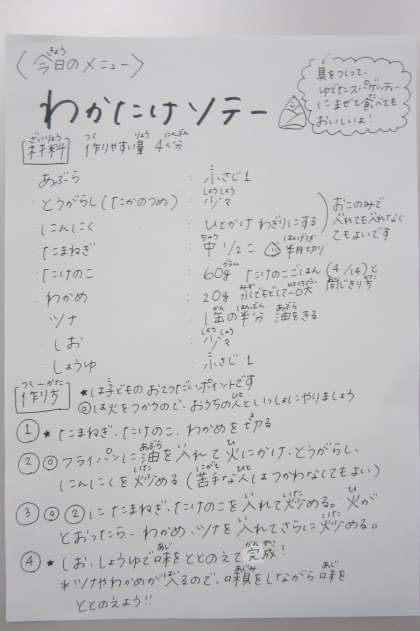 〈今日のメニュー〉
きょう
具をつくって、
ゆでたスパゲッティー
にまぜて食べても
おいしいよ!
わかたけソテー
材料 作りやすい量 4人分
ざいりょう つく りょう にんぶん
・あぶら : 小さじ1
・とうがらし(たかのつめ) : 少々
しょうしょう
・にんにく : ひとかけ わぎりにする
おこのみで
入れても入れなく
てもよいです
・たまねぎ : 中1/2こ 半月切り
ちゅう はんげつぎ
・たけのこ : 60g たけのこごはん(4/14)と
同じきり方
・わかめ : 20g 水でもどして一口大
みず
・ツナ : 1缶の半分 油をきる
かん はんぶん あぶら
・しお : 少々
しょうしょう
・しょうゆ : 小さじ1
作り方 ★は子どものおてつだいポイントです
つくーかた
◎は火をつかうので、おうちの人といっしょにやりましょう
① ★ たまねぎ、たけのこ、わかめを切る
② ◎ フライパンに油を入れて火にかけ、とうがらし、
あぶら い ひ
にんにくを炒める(苦手な人はつかわなくてもよい)
いた にがて ひと
③ ◎ ②にたまねぎ、たけのこを入れて炒める。火が
い いた ひ
とおったら わかめ、ツナを入れてさらに炒める。
い いた
④ ★ しお、しょうゆで味をととのえて完成!
あじ かんせい
*ツナやわかめが入るので、味見をしながら味を
はい あじみ あじ
ととのえよう!!